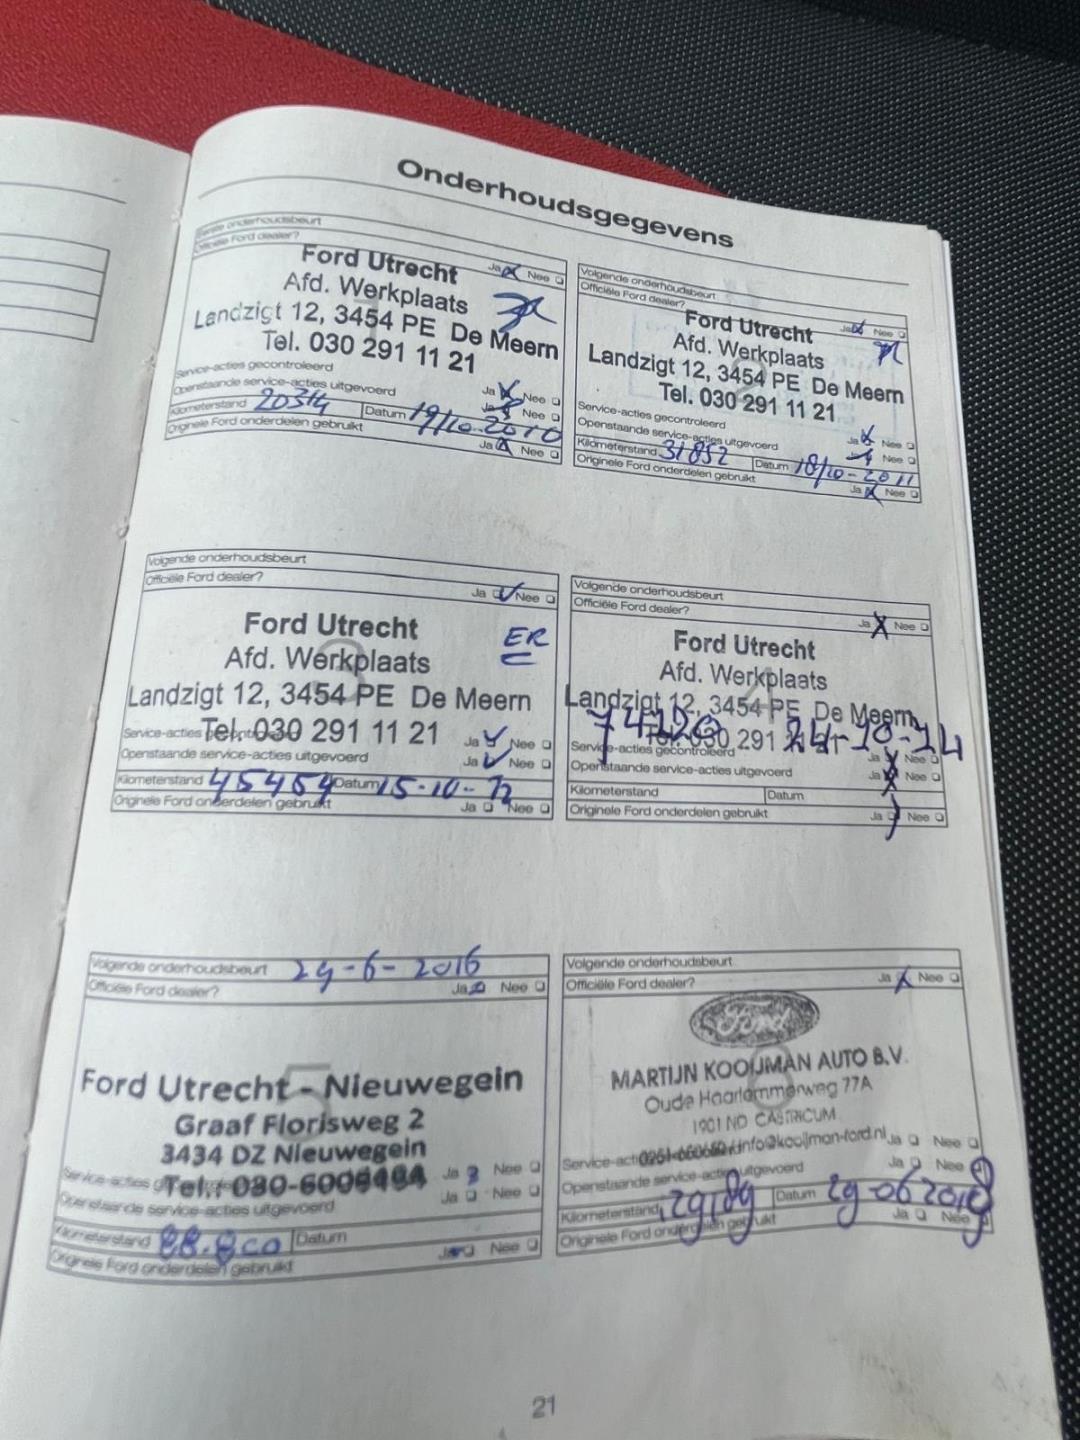 Onderhoudsgegevens
Eerste onderhoudsbeurt
Officiële Ford dealer? Ja Nee
Ford Utrecht
Afd. Werkplaats
Landzigt 12, 3454 PE De Meern
Tel. 030 291 11 21
Service-acties gecontroleerd Ja Nee
Openstaande service-acties uitgevoerd Ja Nee
Kilometerstand 20314 Datum 19/10-2010
Originele Ford onderdelen gebruikt Ja Nee
Volgende onderhoudsbeurt
Officiële Ford dealer? Ja Nee
Ford Utrecht
Afd. Werkplaats
Landzigt 12, 3454 PE De Meern
Tel. 030 291 11 21
Service-acties gecontroleerd Ja Nee
Openstaande service-acties uitgevoerd Nee
Kilometerstand 31852 Datum 18/10-2011
Originele Ford onderdelen gebruikt Ja Nee
Volgende onderhoudsbeurt
Officiële Ford dealer? Ja Nee
3
Ford Utrecht ER
Afd. Werkplaats
Landzigt 12, 3454 PE De Meern
Tel. 030 291 11 21
Service-acties gecontroleerd Ja Nee
Openstaande service-acties uitgevoerd Ja Nee
Kilometerstand 45454 Datum 15-10-12
Originele Ford onderdelen gebruikt Ja Nee
Volgende onderhoudsbeurt
Officiële Ford dealer? Ja Nee
4
Ford Utrecht
Afd. Werkplaats
Landzigt 12, 3454 PE De Meern
Tel. 030 291
74220 24-10-14
Service-acties gecontroleerd Ja Nee
Openstaande service-acties uitgevoerd Ja Nee
Kilometerstand Datum
Originele Ford onderdelen gebruikt Ja Nee
Volgende onderhoudsbeurt 29-6-2016
Officiële Ford dealer? Ja Nee
5
Ford Utrecht - Nieuwegein
Graaf Florisweg 2
3434 DZ Nieuwegein
Tel.: 030-6006494
Service-acties Ja Nee
Openstaande service-acties uitgevoerd Ja Nee
Kilometerstand 88.800 Datum
Originele Ford onderdelen gebruikt Ja Nee
Volgende onderhoudsbeurt
Officiële Ford dealer? Ja Nee
6
Ford
MARTIJN KOOIJMAN AUTO B.V.
Oude Haarlemmerweg 77A
1901 ND CASTRICUM
info@kooijman-ford.nl
Service-acti Ja Nee
Openstaande service-acties uitgevoerd Ja Nee
Kilometerstand 129189 Datum 29-06 2018
Originele Ford onderdelen gebruikt Ja Nee
21